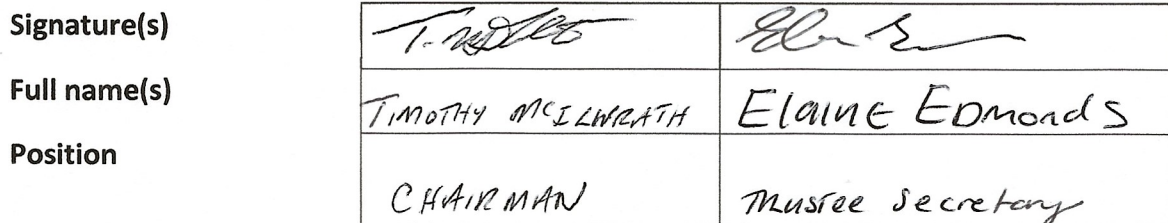 Signature(s)
Full name(s) TIMOTHY MCILWRATH Elaine Edmonds
Position CHAIRMAN Trustee Secretary